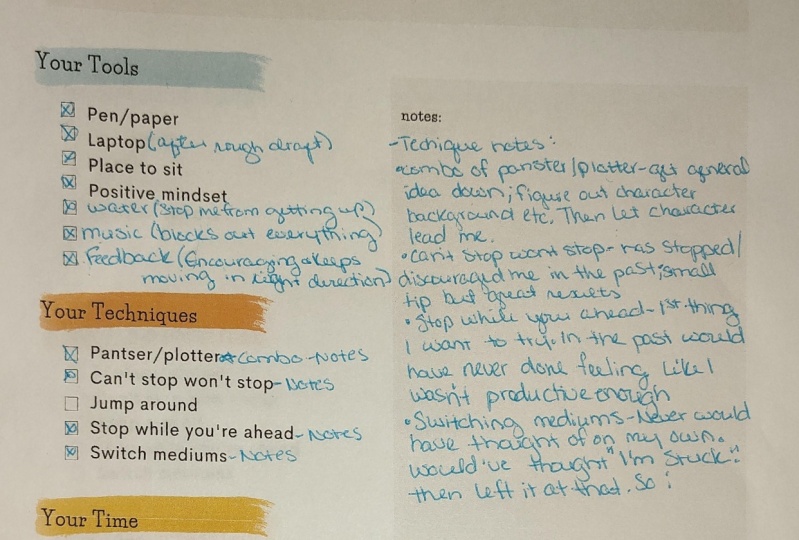 Your Tools
☒ Pen/paper
☒ Laptop (after rough draft)
☒ Place to sit
☒ Positive mindset
☒ water (stop me from getting up)
☒ music (blocks out everything)
☒ Feedback (Encouraging & keeps
moving in right direction)
Your Techniques
☒ Pantser/plotter ☆ combo - Notes
☒ Can't stop won't stop - Notes
☐ Jump around
☒ Stop while you're ahead - Notes
☒ Switch mediums - Notes
Your Time
notes:
- Techique notes:
• combo of panster/plotter - get general
idea down; figure out character
background etc. Then let character
lead me.
• can't stop wont stop - has stopped/
discouraged me in the past; small
tip but great results
• Stop while your ahead - 1st thing
I want to try. In the past would
have never done feeling like I
wasn't productive enough
• Switching mediums - Never would
have thought of on my own.
would've thought "I'm stuck"
then left it at that. So